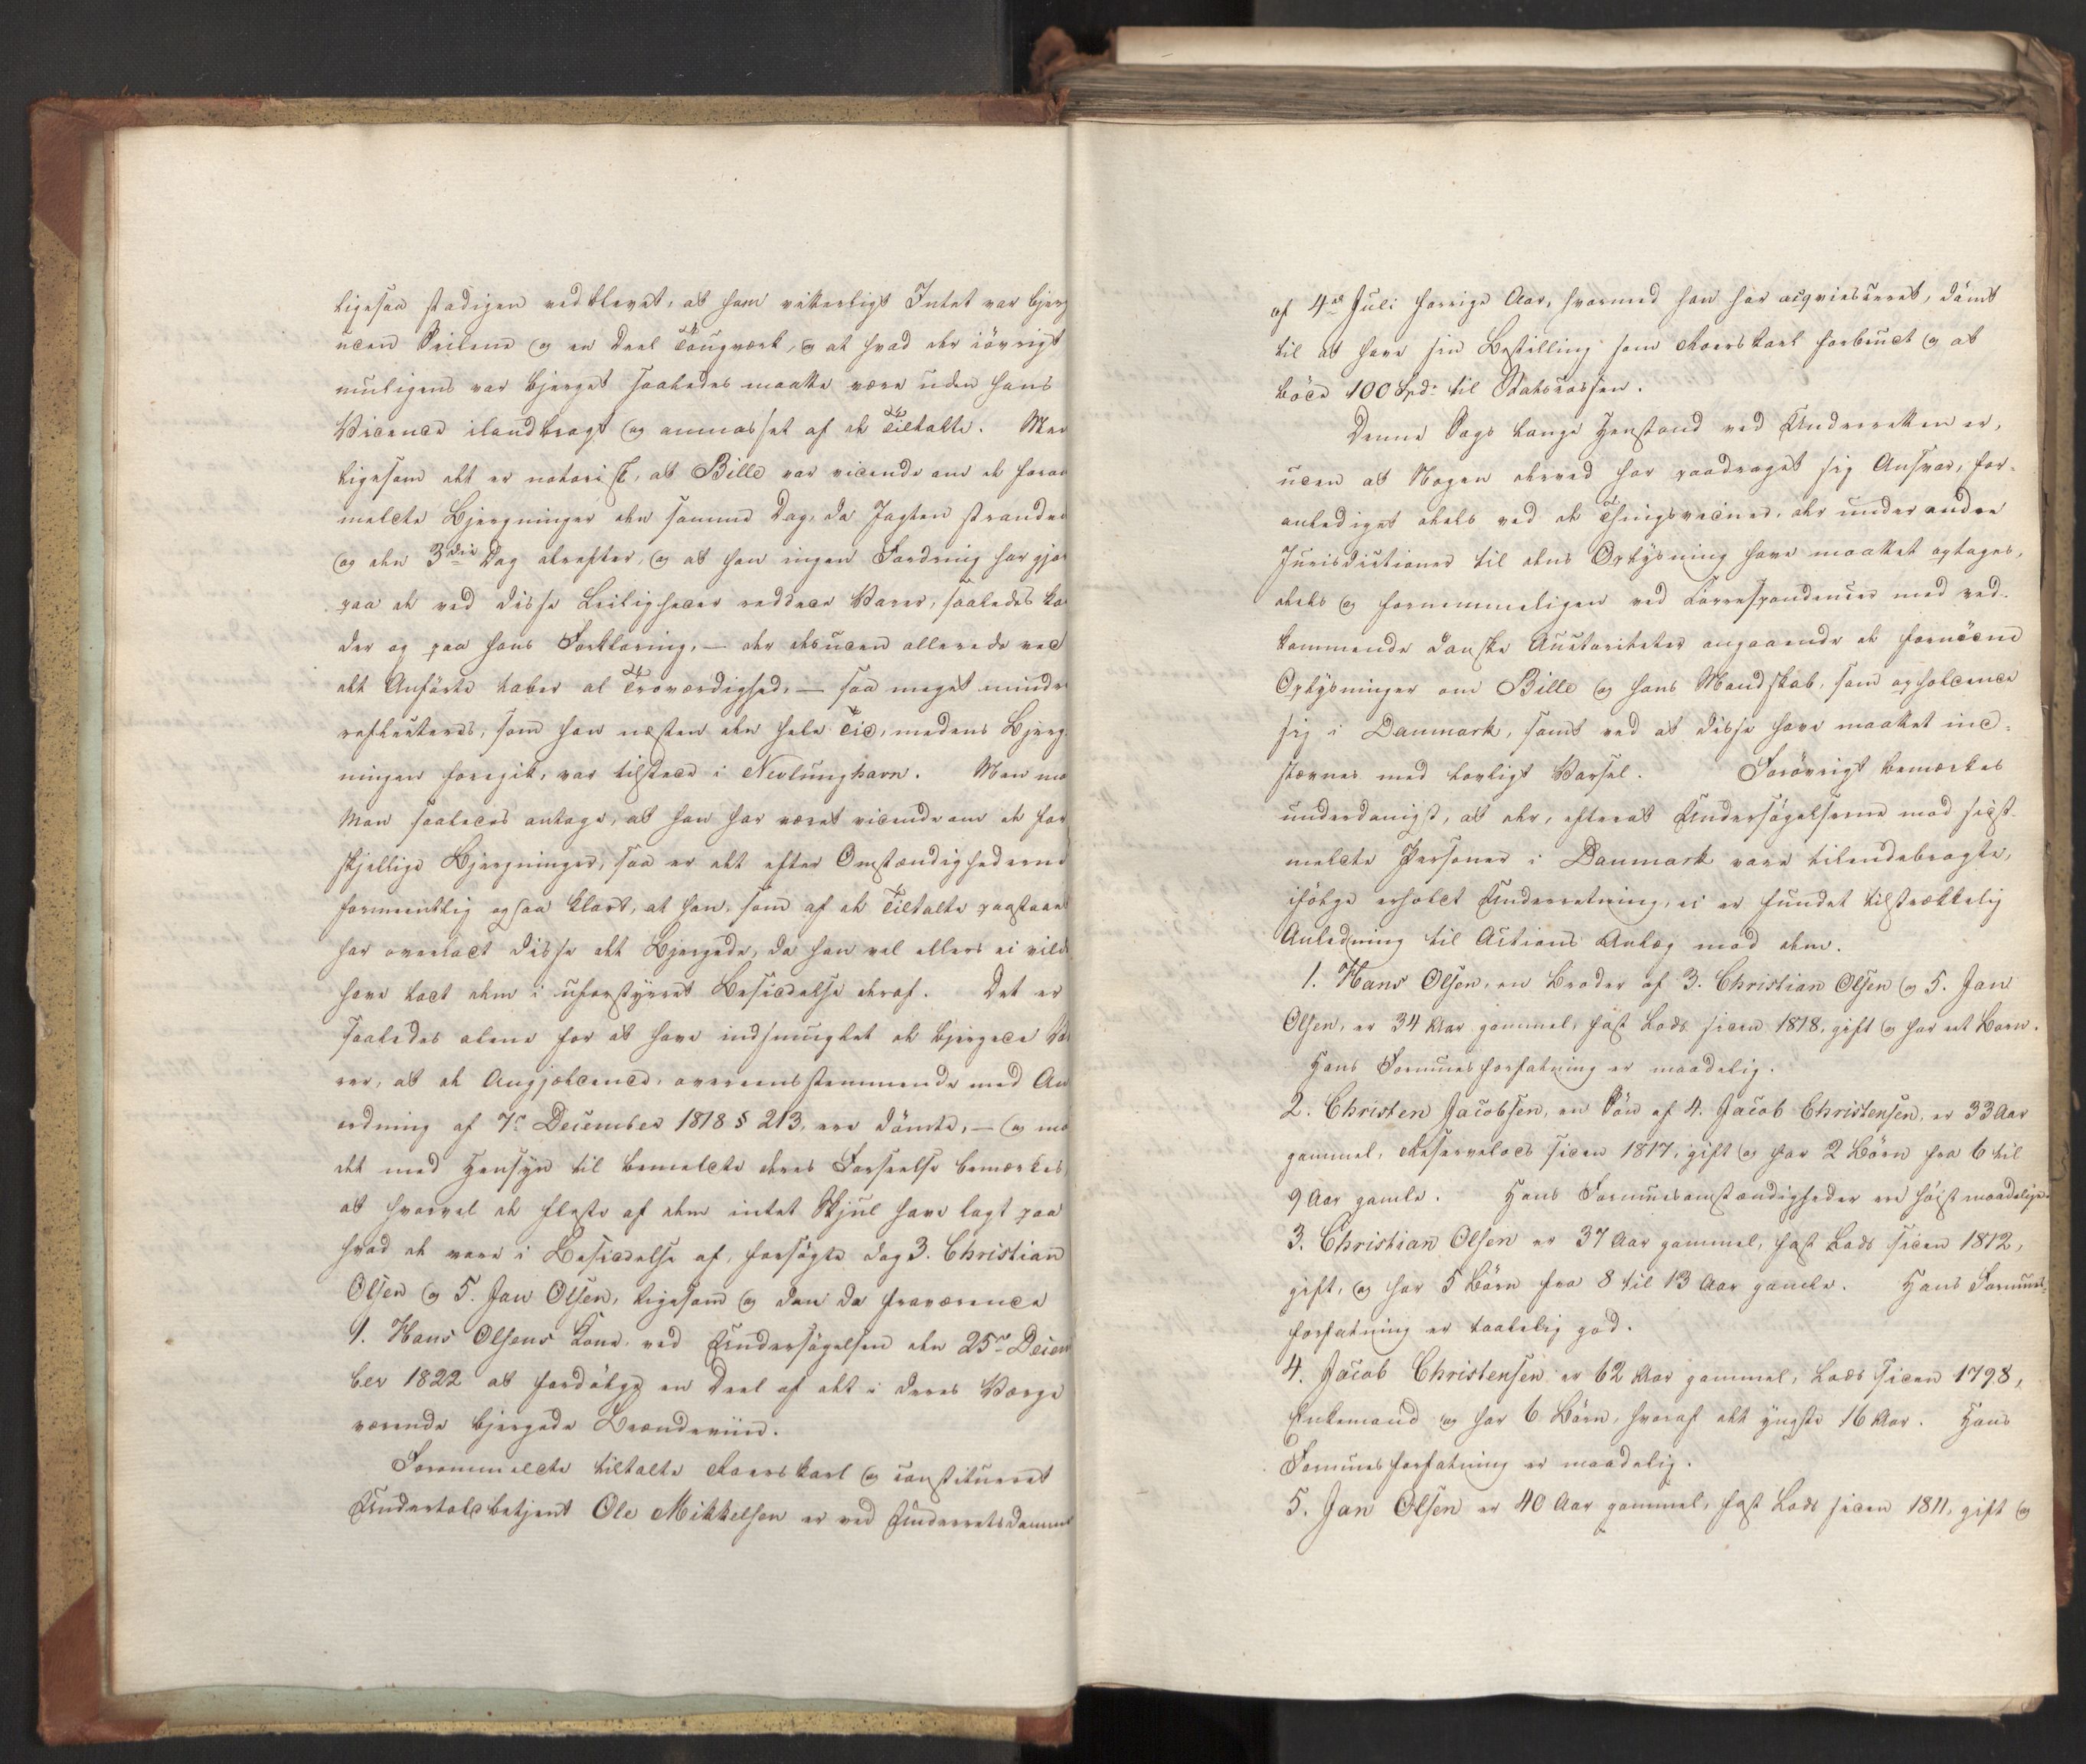 ligesaa stadigen vedblevet, at ham vitterligt Intet var bjerg
uden Seilene og en Deel Tougværk, og at hvad der iövrigt
muligens var bjerget saaledes maatte være uden hans
Vidende ilandbragt og anmasset af de Tiltalte. Men
ligesom det er notorisk, at Bille var vidende om de foran
meldte Bjergninger den samme Dag, da Jagten strandede
og den 3die Dag derefter, og at han ingen Fordring har gjor
paa de ved disse Leiligheder reddede Varer, saaledes ka
der og paa hans Forklaring, — der desuden allerede ved
det Anförte taber al Troværdighed, — saa meget mindre
reflecteres, som han næsten den hele Tid, medens Bjerg
ningen foregik, var tilstede i Nevlunghavn. Men maa
Man saaledes antage, at han har været vidende om de for
skjellige Bjergninger, saa er det efter Omstændighederne
formeentlig ogsaa klart, at han, som af de Tiltalte paastaaet
har overladt disse det Bjergede, da han vel ellers ei vilde
have ladt dem i uforstyrret Besiddelse deraf. Det er
saaledes alene for at have indsmuglet de bjergede Va
rer, at de Angjeldende, overeensstemmende med An
ordning af 7de December 1818 § 213, ere dömte, — og maa
det med Hensyn til bemeldte deres Forseelse bemærkes,
at hvorvel de fleste af dem intet Skjul have lagt paa
hvad de vare i Besiddelse af, forsögte dog 3. Christian
Olsen og 5. Jan Olsen, ligesom og den da fraværende
1. Hans Olsens Kone, ved Undersögelsen den 25de Decem
ber 1822 at fordölge en Deel af det i deres Værge
værende bjergede Brændeviin.
Foranmeldte tiltalte Roerskarl og constitueret
Undertoldbetjent Ole Mikkelsen er ved Underretsdommen
af 4de Juli forrige Aar, hvormed han har acqviesceret, dömt
til at have sin Bestilling som Roerskarl forbrudt og at
böde 100 Spd. til Statscassen.
Denne Sags lange Henstand ved Underretten er,
uden at Nogen derved har paadraget sig Ansvar, for-
anlediget deels ved de Thingsvidner, der under andre
Jurisdictioner til dens Oplysning have maattet optages,
deels og fornemmeligen ved Correspondencer med ved-
kommende danske Auctoriteter angaaende de fornödne
Oplysninger om Bille og hans Mandskab, som opholdende
sig i Danmark, samt ved at disse have maattet ind-
stævnes med lovligt Varsel. Forövrigt bemærkes
underdanigst, at der, efterat Undersögelserne mod sidst-
meldte Personer i Danmark vare tilendebragte,
ifölge erholdt Underretning, ei er fundet tilstrækkelig
Anledning til Actions Anlæg mod dem.
1. Hans Olsen, en Broder af 3. Christian Olsen og 5. Jan
Olsen, er 34 Aar gammel, fast Lods siden 1818, gift og har eet Barn.
Hans Formuesforfatning er maadelig.
2. Christen Jacobsen, en Sön af 4. Jacob Christensen, er 33 Aar
gammel, Reservelods siden 1817, gift og har 2 Börn fra 6 til
9 Aar gamle. Hans Formuesomstændigheder ere höist maadelige.
3. Christian Olsen er 37 Aar gammel, fast Lods siden 1812,
gift, og har 5 Börn fra 8 til 13 Aar gamle. Hans Formues-
forfatning er taalelig god.
4. Jacob Christensen er 62 Aar gammel, Lods siden 1798,
Enkemand og har 6 Börn, hvoraf det yngste 16 Aar. Hans
Formuesforfatning er maadelig.
5. Jan Olsen er 40 Aar gammel, fast Lods siden 1811, gift og